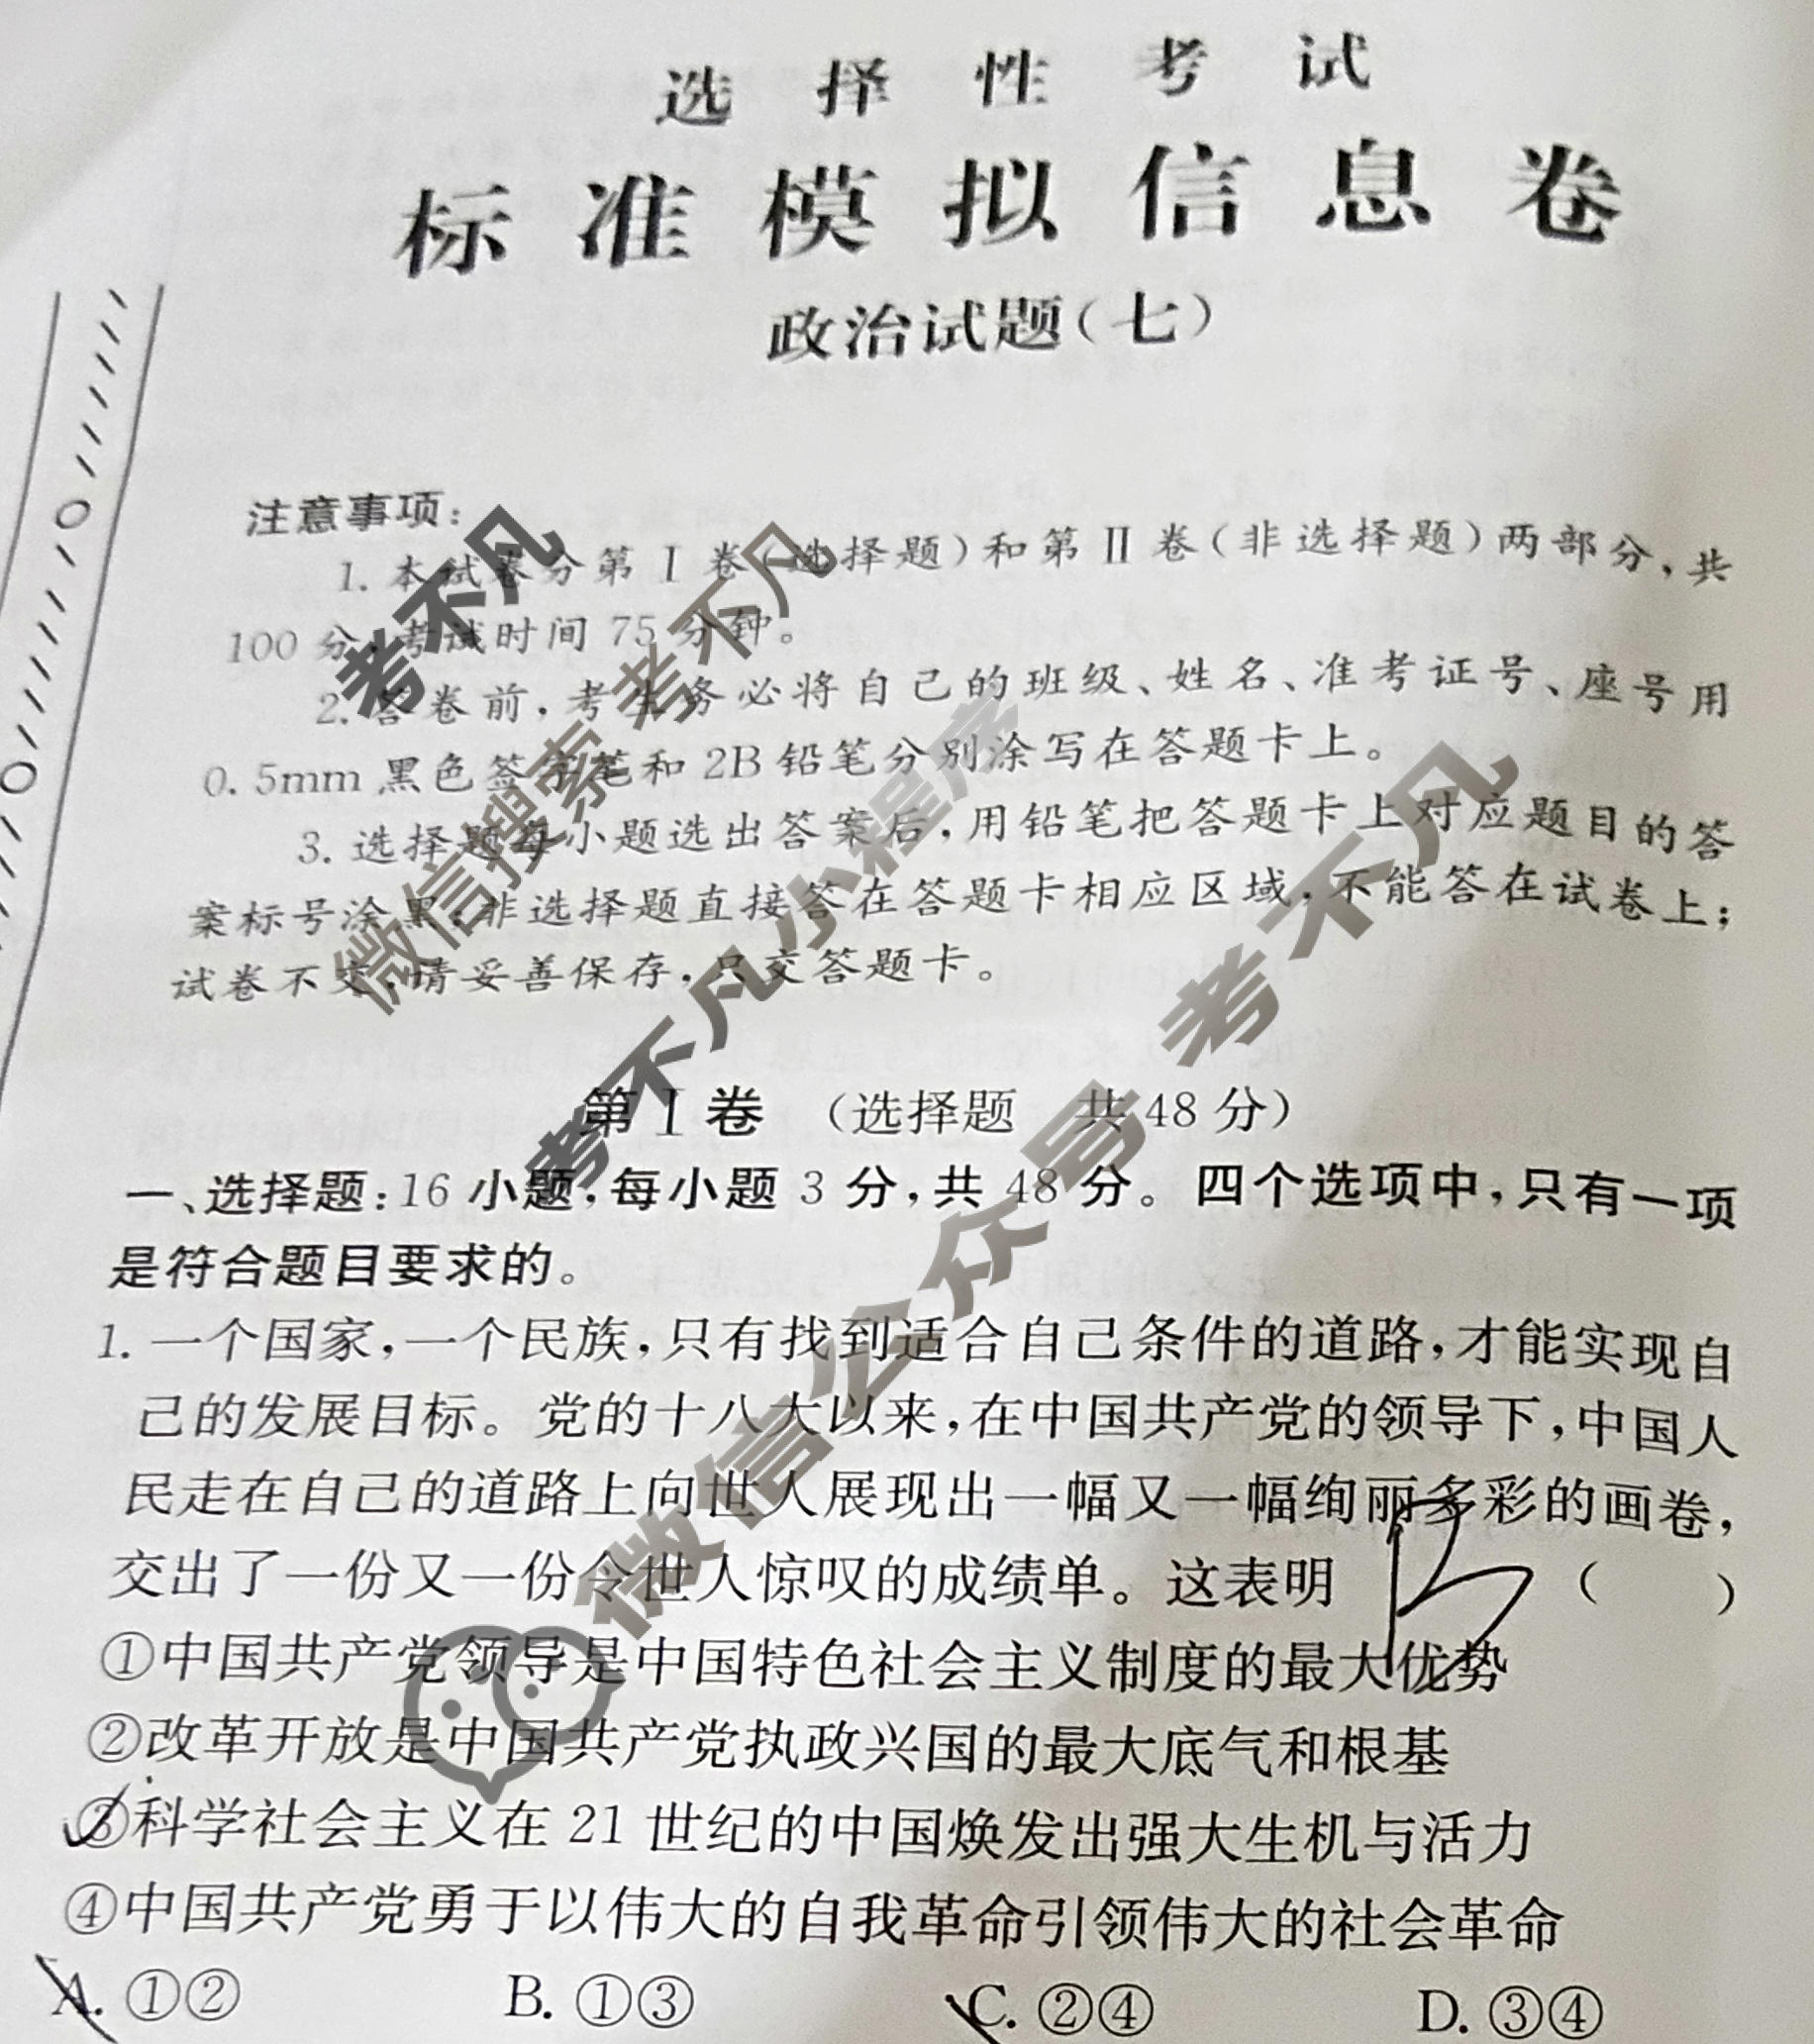 选择性考试
标准模拟信息卷
政治试题(七)
注意事项:
1. 本试卷分第Ⅰ卷(选择题)和第Ⅱ卷(非选择题)两部分,共
100 分,考试时间 75 分钟。
2. 答卷前,考生务必将自己的班级、姓名、准考证号、座号用
0.5mm 黑色签字笔和 2B 铅笔分别涂写在答题卡上。
3. 选择题每小题选出答案后,用铅笔把答题卡上对应题目的答
案标号涂黑;非选择题直接答在答题卡相应区域,不能答在试卷上;
试卷不交,请妥善保存,只交答题卡。
考不凡
微信搜索 考不凡
考不凡小程序
微信公众号 考不凡
第Ⅰ卷 (选择题 共 48 分)
一、选择题:16 小题,每小题 3 分,共 48 分。四个选项中,只有一项
是符合题目要求的。
1. 一个国家,一个民族,只有找到适合自己条件的道路,才能实现自
己的发展目标。党的十八大以来,在中国共产党的领导下,中国人
民走在自己的道路上向世人展现出一幅又一幅绚丽多彩的画卷,
交出了一份又一份令世人惊叹的成绩单。这表明 B ( )
①中国共产党领导是中国特色社会主义制度的最大优势
②改革开放是中国共产党执政兴国的最大底气和根基
③科学社会主义在 21 世纪的中国焕发出强大生机与活力
④中国共产党勇于以伟大的自我革命引领伟大的社会革命
A. ①② B. ①③ C. ②④ D. ③④